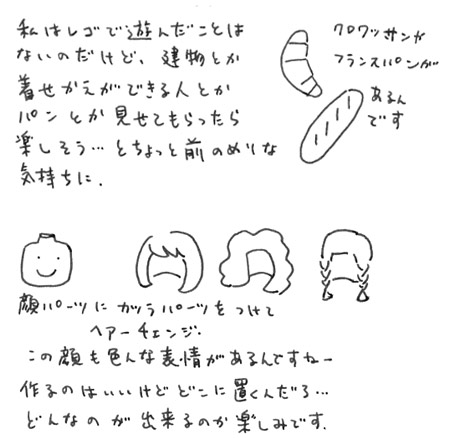 私はレゴで遊んだことは
ないのだけど、建物とか
着せかえができる人とか
パンとか見せてもらったら
楽しそう…とちょっと前のめりな
気持ちに.
クロワッサンや
フランスパンが
あるん
です
顔パーツにカツラパーツをつけて
ヘアーチェンジ.
この顔も色んな表情があるんですねー
作るのはいいけどどこに置くんだろ…
どんなのが出来るのか楽しみです.